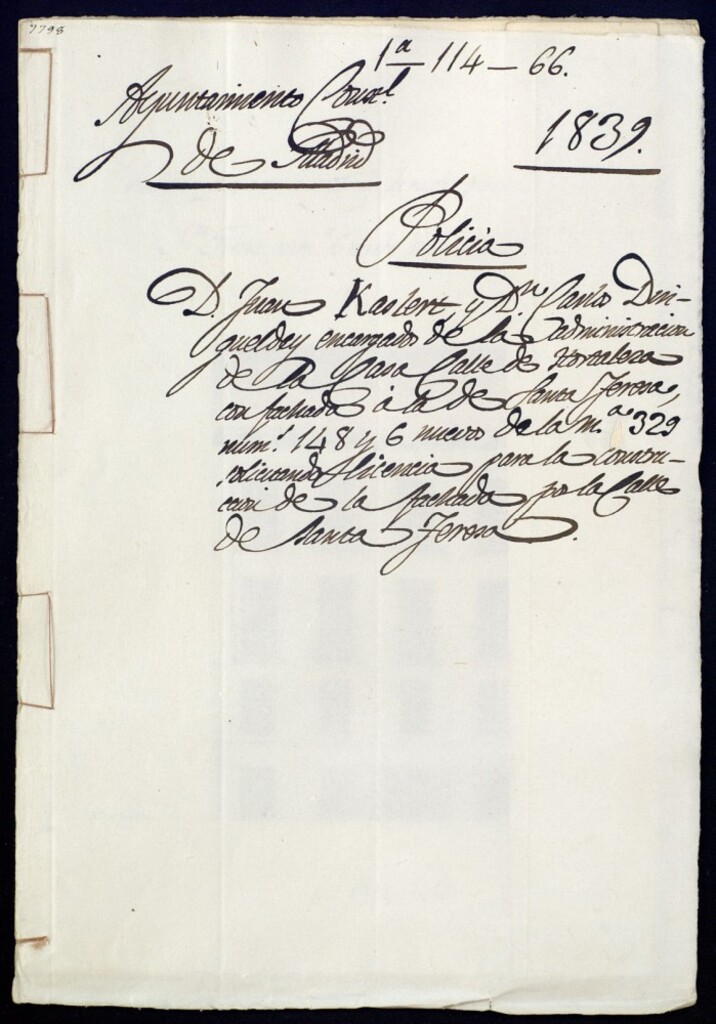 7798
1ª - 114 - 66.
Ayuntamiento Const.l
de Madrid
1839.
Policia
D. Juan Kaslert, y D.n Carlos Din-
gueldey encargado de la administracion
de la Casa Calle de Hortaleza
con fachada á la de Santa Teresa,
num.s 148 y 6 nuevos de la m.a 329
solicitando licencia para la constru-
ccion de la fachada por la Calle
de Santa Teresa.